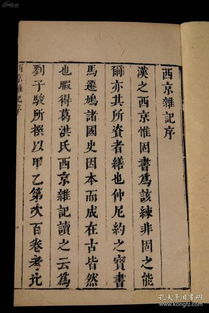 西京雜記序
漢之西京惟固書為該練非固之能
爾亦其所資者繕也仲尼約之寶書
馬遷鳩諸國史因本而成在古皆然
也暇得葛洪氏西京雜記讀之云為
劉子駿所撰以甲乙第次百卷考比
西京雜記序